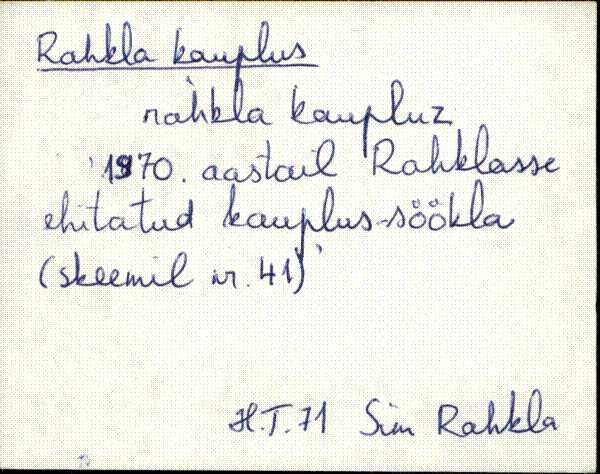 Rahkla kauplus
ràhkla kaupluz
'1970. aastail Rahklasse
ehitatud kauplus-söökla
(skeemil nr. 41)'
H.T. 71 Sim Rahkla